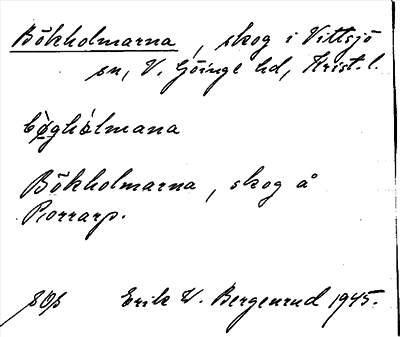 Bökholmarna, skog i Vittsjö
sn, V. Göinge hd, Krist. l.
bø̀ghólmana
Bökholmarna, skog å
Porrarp.
Erik W. Bergenrud 1945.